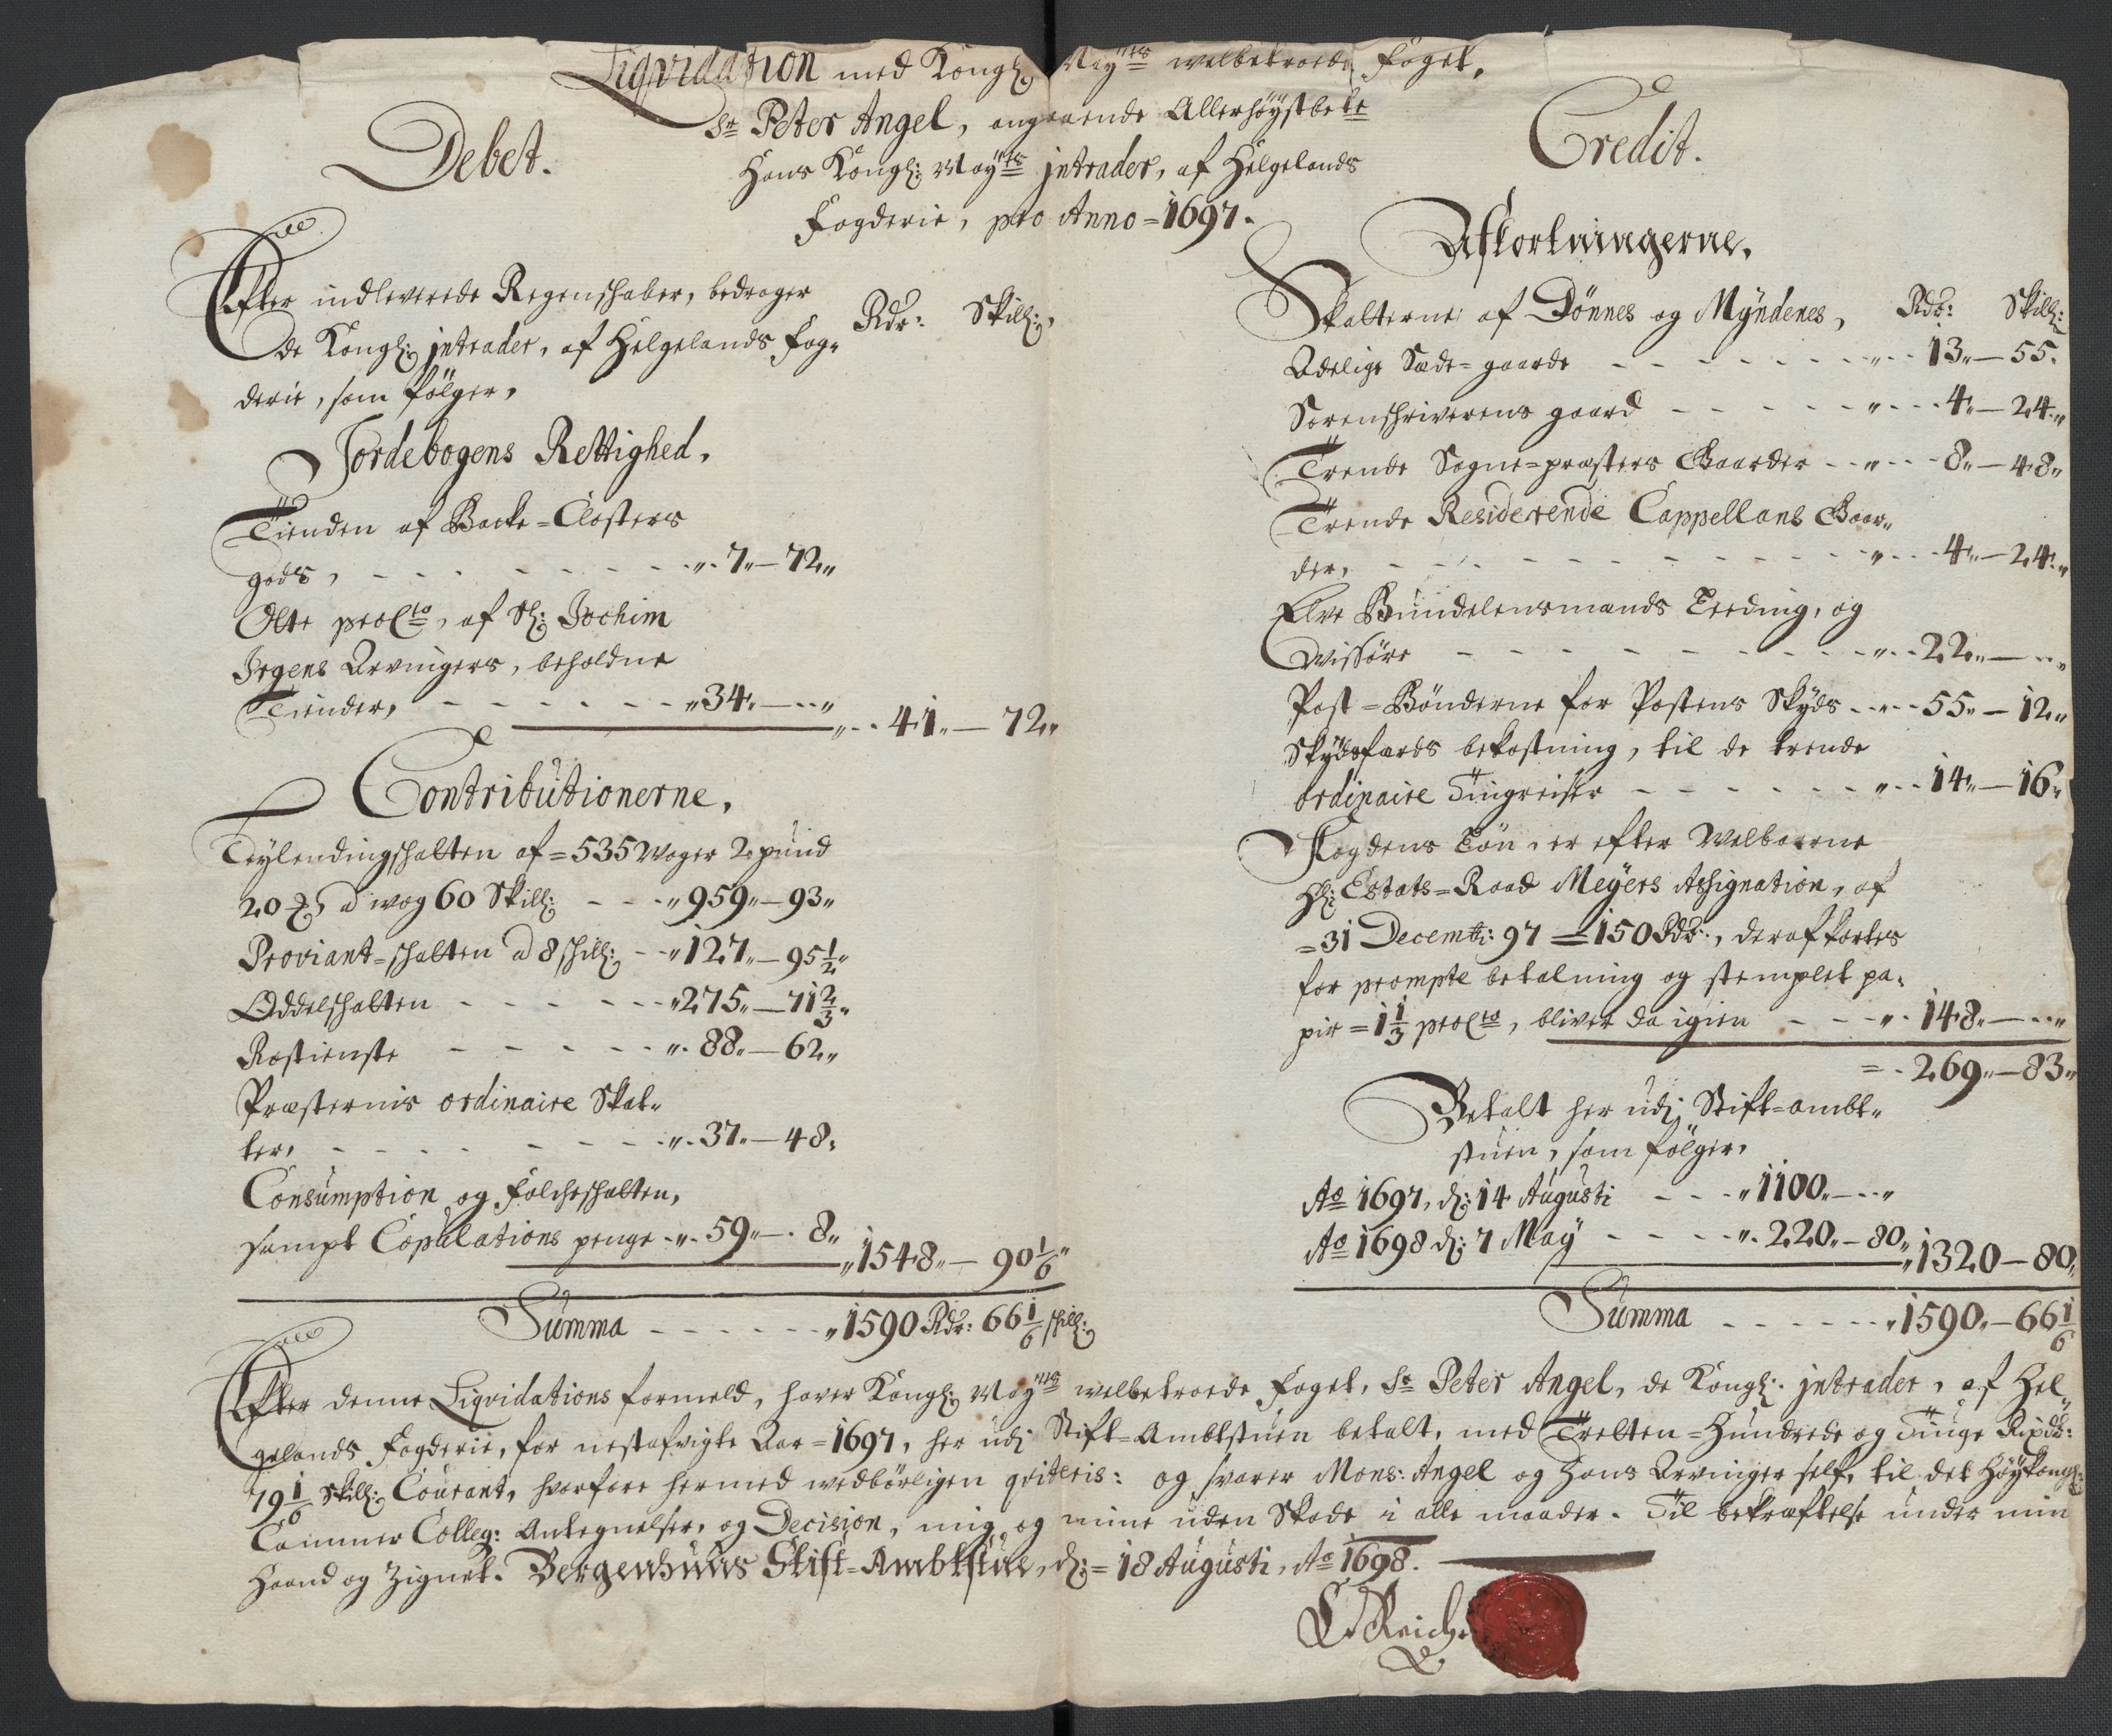 Liqvidation med Kongl: Mayts welbetroede Foget,
Sr Peter Angel, angaaende Allerhöystbete
Hans Kongl: Mayts jntrader, af Helgelands
Fogderie, pro Anno = 1697.
Debet.
Efter indleverede Regenschaber, bedrager
de Kongl: jntrader, af Helgelands Fog-
derie, som fölger,
Rdr: Skill:
Jordebogens Rettighed.
Tienden af Backe=Closters
gods, - - - 7 - 72
Otte proCto, af Sl: Jochim
Jrgens Arvingers, beholdne
Tiender, - - - 34 - -
41 - 72
Contributionerne.
Leylendingschatten af = 535 Woger 2 pund
20 ℔ a wog 60 Skill: - - 959 - 93
Proviant=schatten a 8 schill: - - 127 - 95½
Oddelschatten - - - 275 - 71⅔
Rostieniste - - - 88 - 62
Præsternis ordinaire Skat-
ter, - - - 37 - 48
Consumption og Folcheschatten,
sampt Copulations penge - 59 - 8
1548 - 90 1/6
Summa - - - 1590 Rdr: 66 1/6 schill:
Credit.
Afkortningerne.
Skatterne af Dönnes og Myndenes, Rdr: Skill:
Adelige Sæde=gaarde - - - 13 - 55
Sorenschriverens gaard - - - 4 - 24
Trende Sogne=præsters Gaarder - - 8 - 48
Trende Residerende Cappellans Gaar-
der, - - - 4 - 24
Elve Bundelensmands Leeding, og
Wissöre - - - 22 - -
Post=Bönderne for Postens Skyds - - 55 - 12
Skydsfærds bekostning, til de trende
ordinaire Tingreiser - - - 14 - 16
Fogdens Lön, er efter Welbaarne
Hl: Estats=Raad Meyers Assignation, af
= 31 Decembr: 97 = 150 Rdr:, deraf kortes
for prompte betalning og stemplet pa-
pir = 1⅓ proCto, bliver da igien - - 148 - -
= 269 - 83
Betalt her udi Stift=ambt-
stuen, som fölger,
Ao 1697, d: 14 Augusti - - - 1100 - -
Ao 1698 d: 7 May - - - 220 - 80
1320 - 80
Summa - - - 1590 - 66 1/6
Efter denne Liqvidations formeld, haver Kongl: Mayts welbetroede Foget, Sr Peter Angel, de Kongl: jntrader, af Hel-
gelands Fogderie, for nestafvigte Aar = 1697, her udi Stift=Ambtstuen betalt, med Tretten=Hundrede og Tiuge Rixdl:
79 1/6 Skill: Courant, hvorfore hermed wedbörligen qviteris: og svarer Mons: Angel og hans Arvinger self, til det Höykongl:
Cammer Colleg: Antegnelser, og Decision, mig og mine uden Skade i alle maader. Til bekræftelse under min
Haand og Zignet. Bergenhuus Stift=Ambtstue, d: = 18 Augusti, Ao 1698.